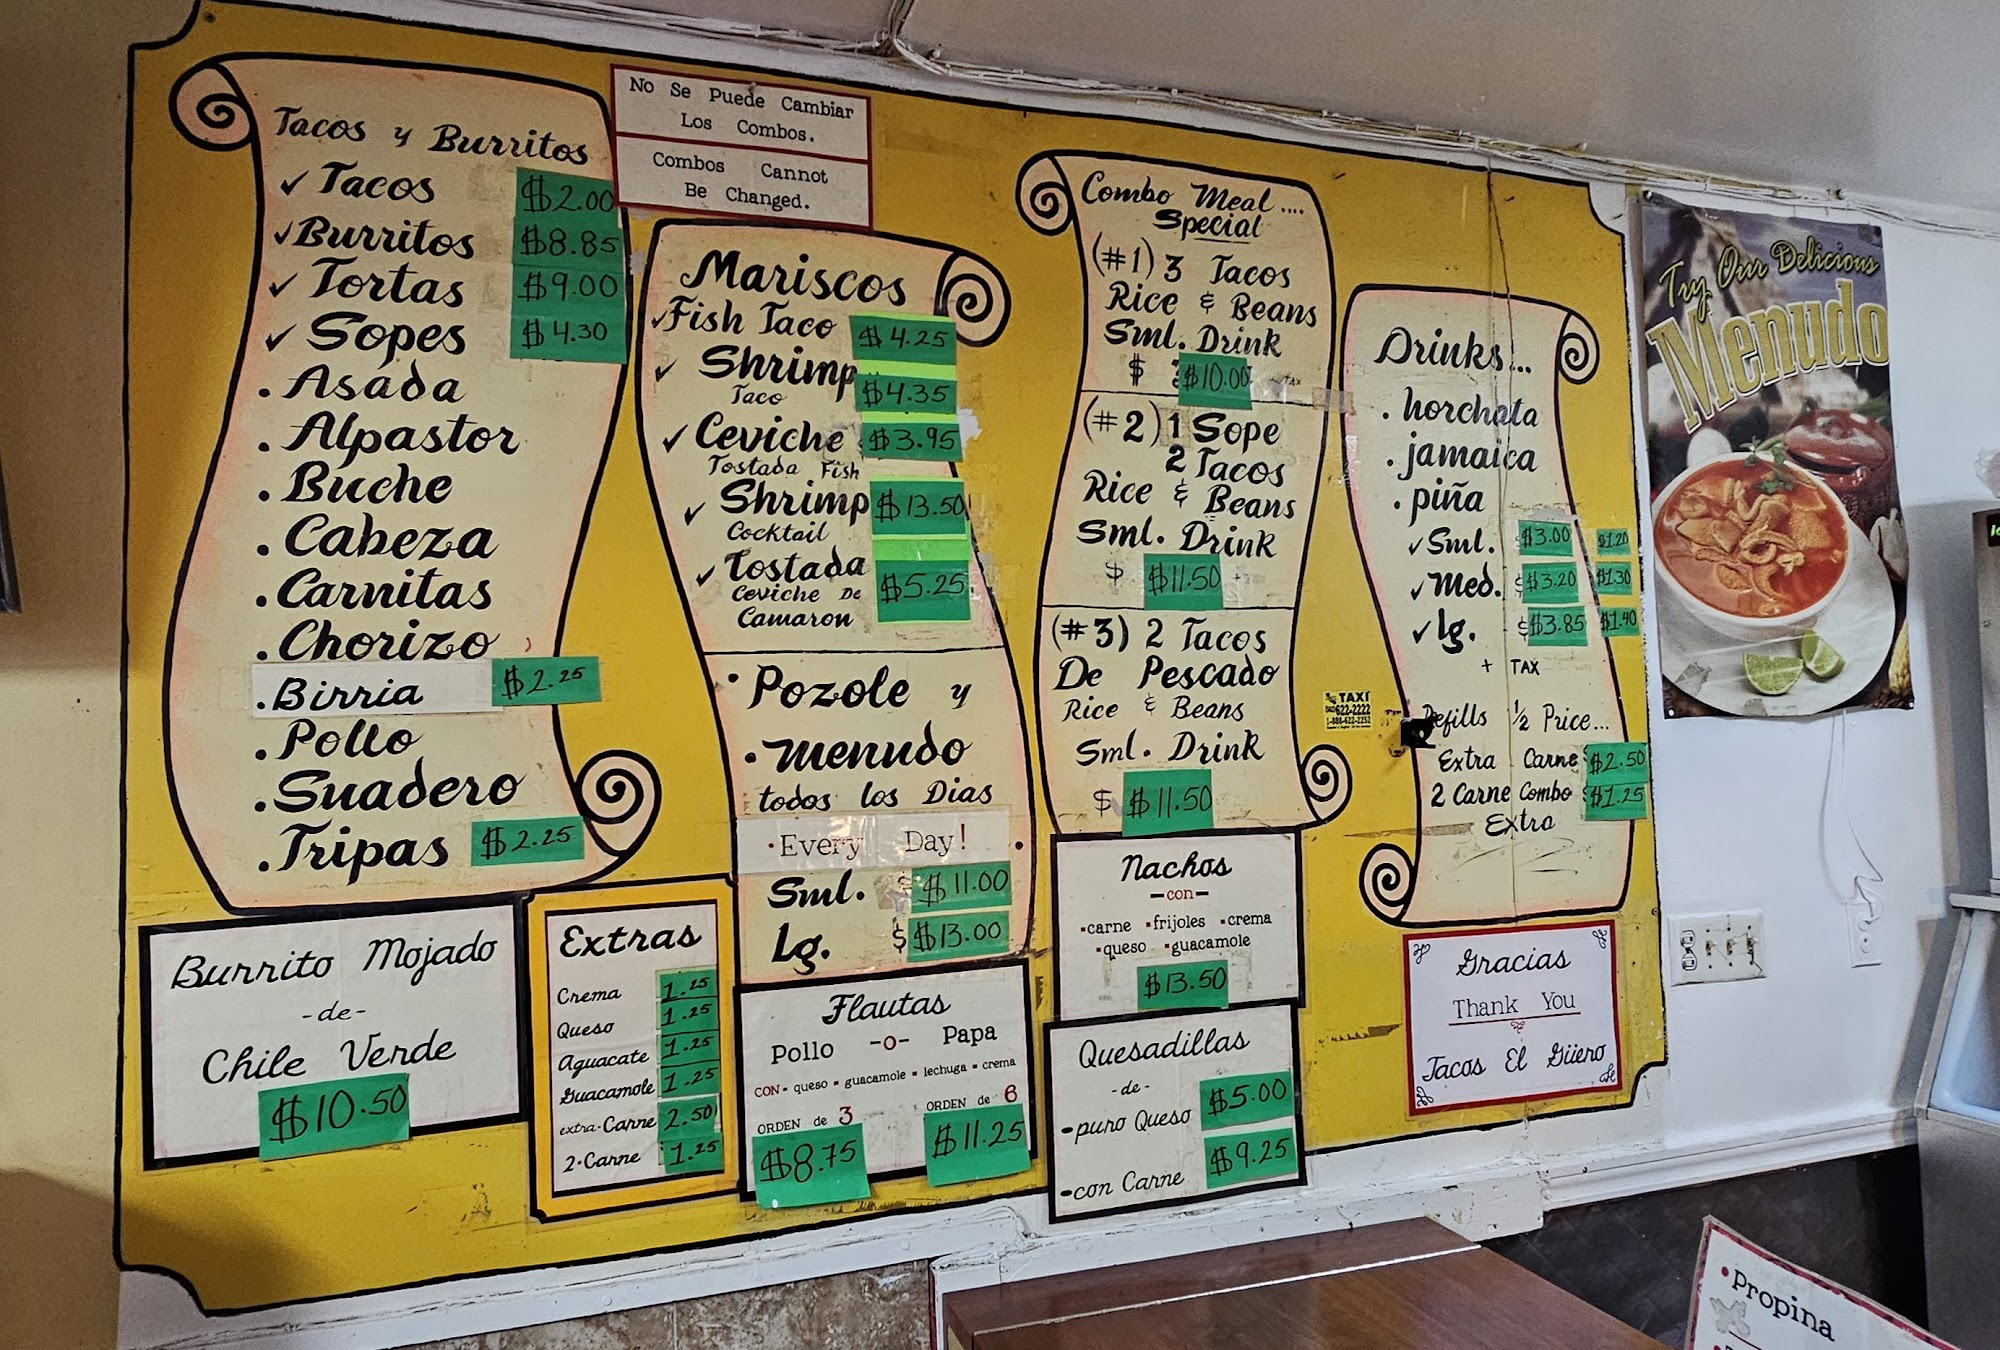 No Se Puede Cambiar
Los Combos.
Combos Cannot
Be Changed.
Tacos y Burritos
✓ Tacos $2.00
✓ Burritos $8.85
✓ Tortas $9.00
✓ Sopes $4.30
. Asada
. Alpastor
. Buche
. Cabeza
. Carnitas
. Chorizo
. Birria $2.25
. Pollo
. Suadero
. Tripas $2.25
Burrito Mojado
-de-
Chile Verde
$10.50
Extras
Crema 1.25
Queso 1.25
Aguacate 1.25
Guacamole 1.25
extra-Carne 2.50
2-Carne 1.25
Mariscos
✓ Fish Taco $4.25
✓ Shrimp $4.35
Taco
✓ Ceviche $3.95
Tostada Fish
✓ Shrimp $13.50
Cocktail
✓ Tostada $5.25
Ceviche De
Camaron
• Pozole y
• menudo
todos los Dias
• Every Day!
Sml. $11.00
Lg. $ $13.00
Flautas
Pollo -o- Papa
CON• queso • guacamole • lechuga • crema
ORDEN de 3 ORDEN de 6
$8.75 $11.25
Combo Meal ....
Special
(#1) 3 Tacos
Rice & Beans
Sml. Drink
$ $10.00 TAX
(#2) 1 Sope
2 Tacos
Rice & Beans
Sml. Drink
$ $11.50
(#3) 2 Tacos
De Pescado
Rice & Beans
Sml. Drink
$ $11.50
Nachos
-con-
•carne •frijoles •crema
•queso •guacamole
$13.50
Quesadillas
-de-
-puro Queso $5.00
-con Carne $9.25
Drinks...
. horchata
. jamaica
. piña
✓ Sml. $3.00 $1.20
✓ Med. $3.20 $1.30
✓ lg. $3.85 $1.40
+ TAX
Refills 1/2 Price...
Extra Carne $2.50
2 Carne Combo $1.25
Extra
TAXI
622-2222
1-888-622-2252
Gracias
Thank You
Tacos El Güero
Try Our Delicious
Menudo
• Propina